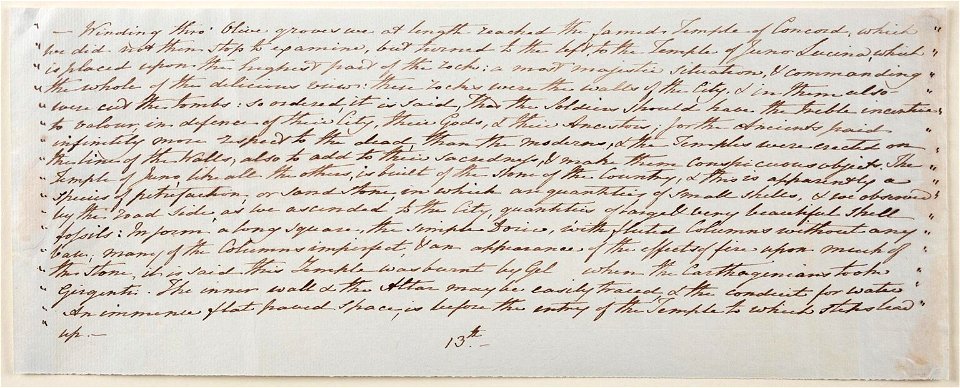 — Winding thro' Olive groves we at length reached the famed Temple of Concord, which
we did not then stop to examine, but turned to the left to the Temple of Juno Lucina, which
is placed upon the highest part of the rock: a most majestic situation, & commanding
the whole of the delicious view: these rocks were the walls of the City, & in them also
were cut the tombs: so ordered, it is said, that the Soldiers should have the treble incentive
to valour, in defence of their City, their Gods, & their Ancestors, for the Ancients paid
infinitely more respect to the dead, than the moderns, & the Temples were erected on
the line of the Walls, also to add to their sacredness, & make them conspicuous objects. The
Temple of Juno like all the others, is built of the Stone of the Country, & this is apparently a
species of petrefaction, or sand stone, in which are quantities of small shells, & we observed
by the road side, as we ascended to the City, quantities of large & very beautiful shell
fossils: In form a long square, the simple Doric, with fluted Columns without any
base; many of the Columns imperfect, & an appearance of the effects of fire upon much of
the Stone, it is said this Temple was burnt by Gel when the Carthagenians took
Girgenti. The inner wall & the Altar may be easily traced, & the conduit for water
An immence flat paved space, is before the entry of the Temple to which steps lead
up. —
13th. —